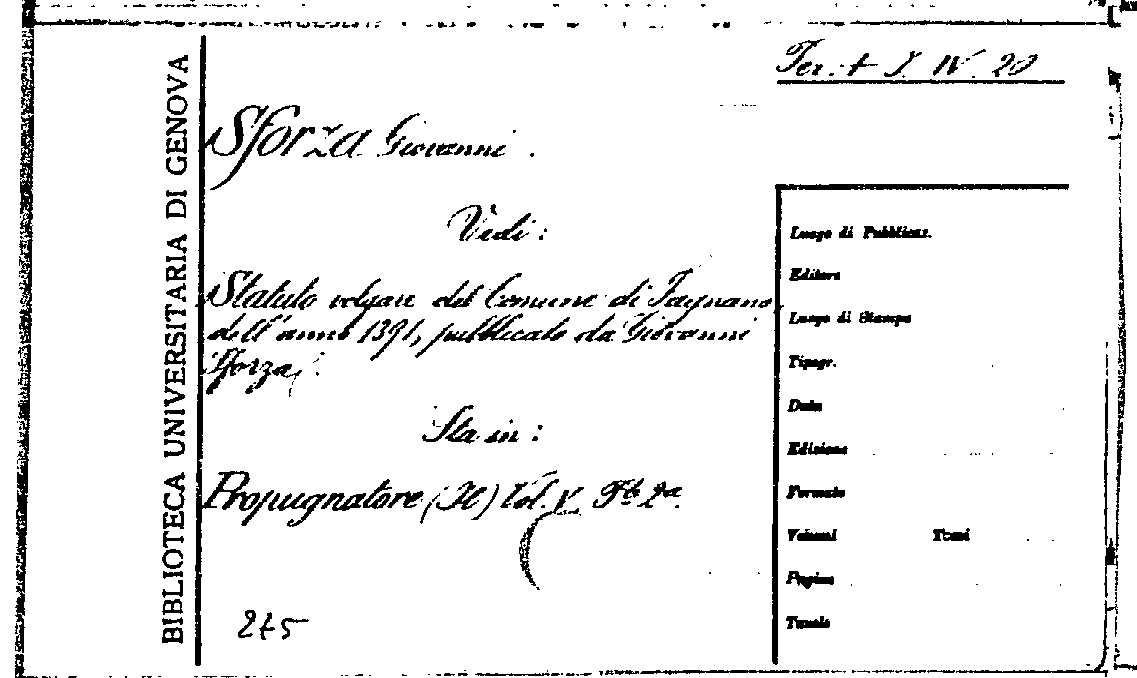 BIBLIOTECA UNIVERSITARIA DI GENOVA
Ter. + J. IV. 20
Sforza Giovanni.
Vedi:
Statuto volgare del Comune di
dell'anno 1391, pubblicato da Giovanni
Sforza.
Sta in:
Propugnatore (Il) Vol. V. Pte 2a.
245
Luogo di Pubblicaz.
Editore
Luogo di Stampa
Tipogr.
Data
Edizione
Formato
Volumi Tomi
Pagine
Tavole